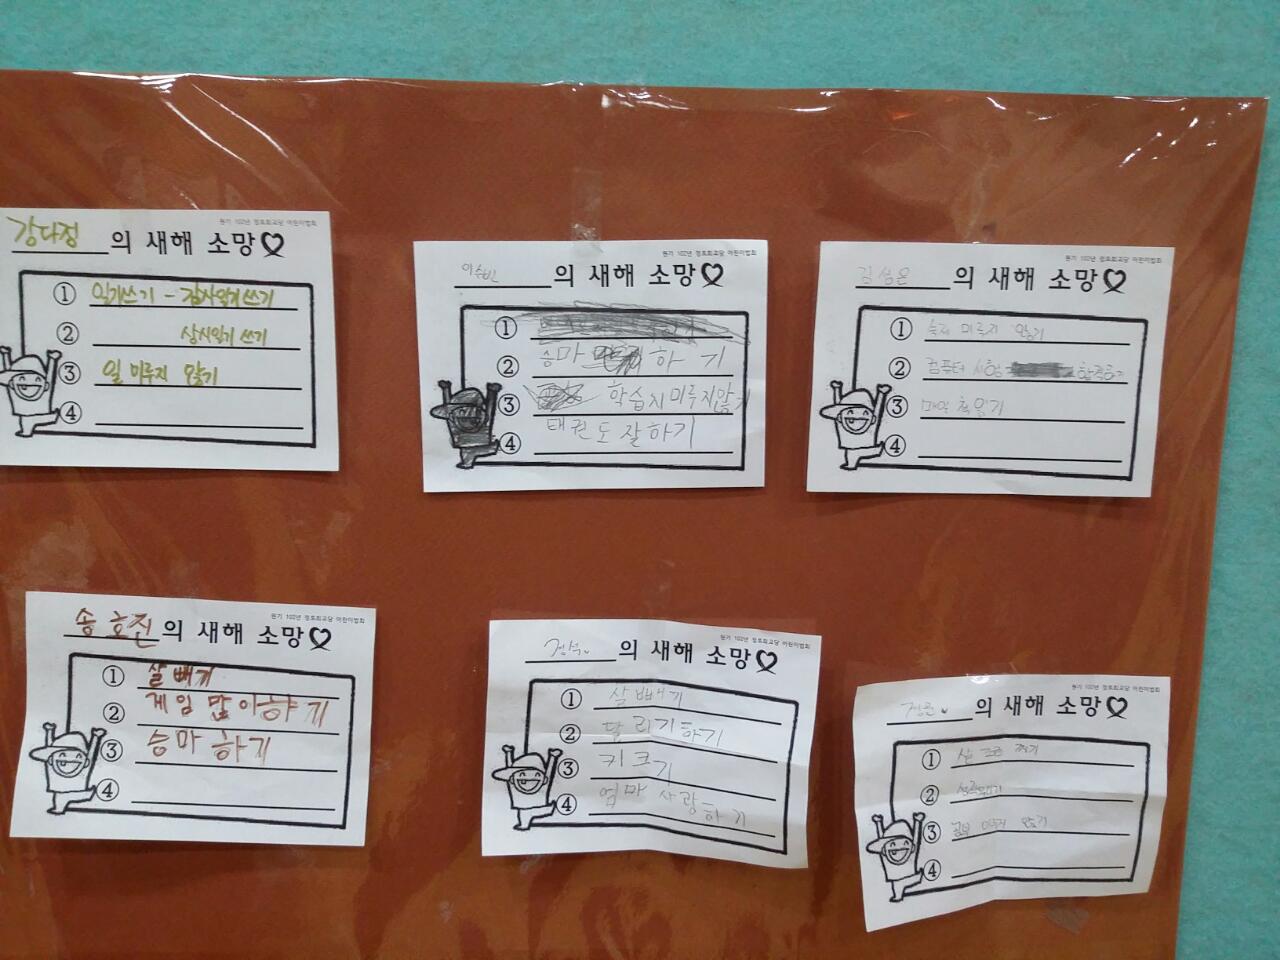 원기 102년 정토회교당 어린이법회
강다정의 새해 소망
① 일기쓰기 - 감사일기 쓰기
② 상시일기 쓰기
③ 일 미루지 않기
④
원기 102년 정토회교당 어린이법회
이수빈의 새해 소망
①
② 승마 하기
③ 학습지 미루지않기
④ 태권도 잘하기
원기 102년 정토회교당 어린이법회
김성은의 새해 소망
① 숙제 미루지 않기
② 컴퓨터 시험 합격하기
③ 매일 책읽기
④
원기 102년 정토회교당 어린이법회
송호진의 새해 소망
① 살빼기
② 게임 많이하기
③ 승마 하기
④
원기 102년 정토회교당 어린이법회
의 새해 소망
① 살빼기
② 달리기하기
③ 키크기
④ 엄마 사랑하기
원기 102년 정토회교당 어린이법회
의 새해 소망
① 살 조금 찌기
②
③ 공부 미루지 않기
④